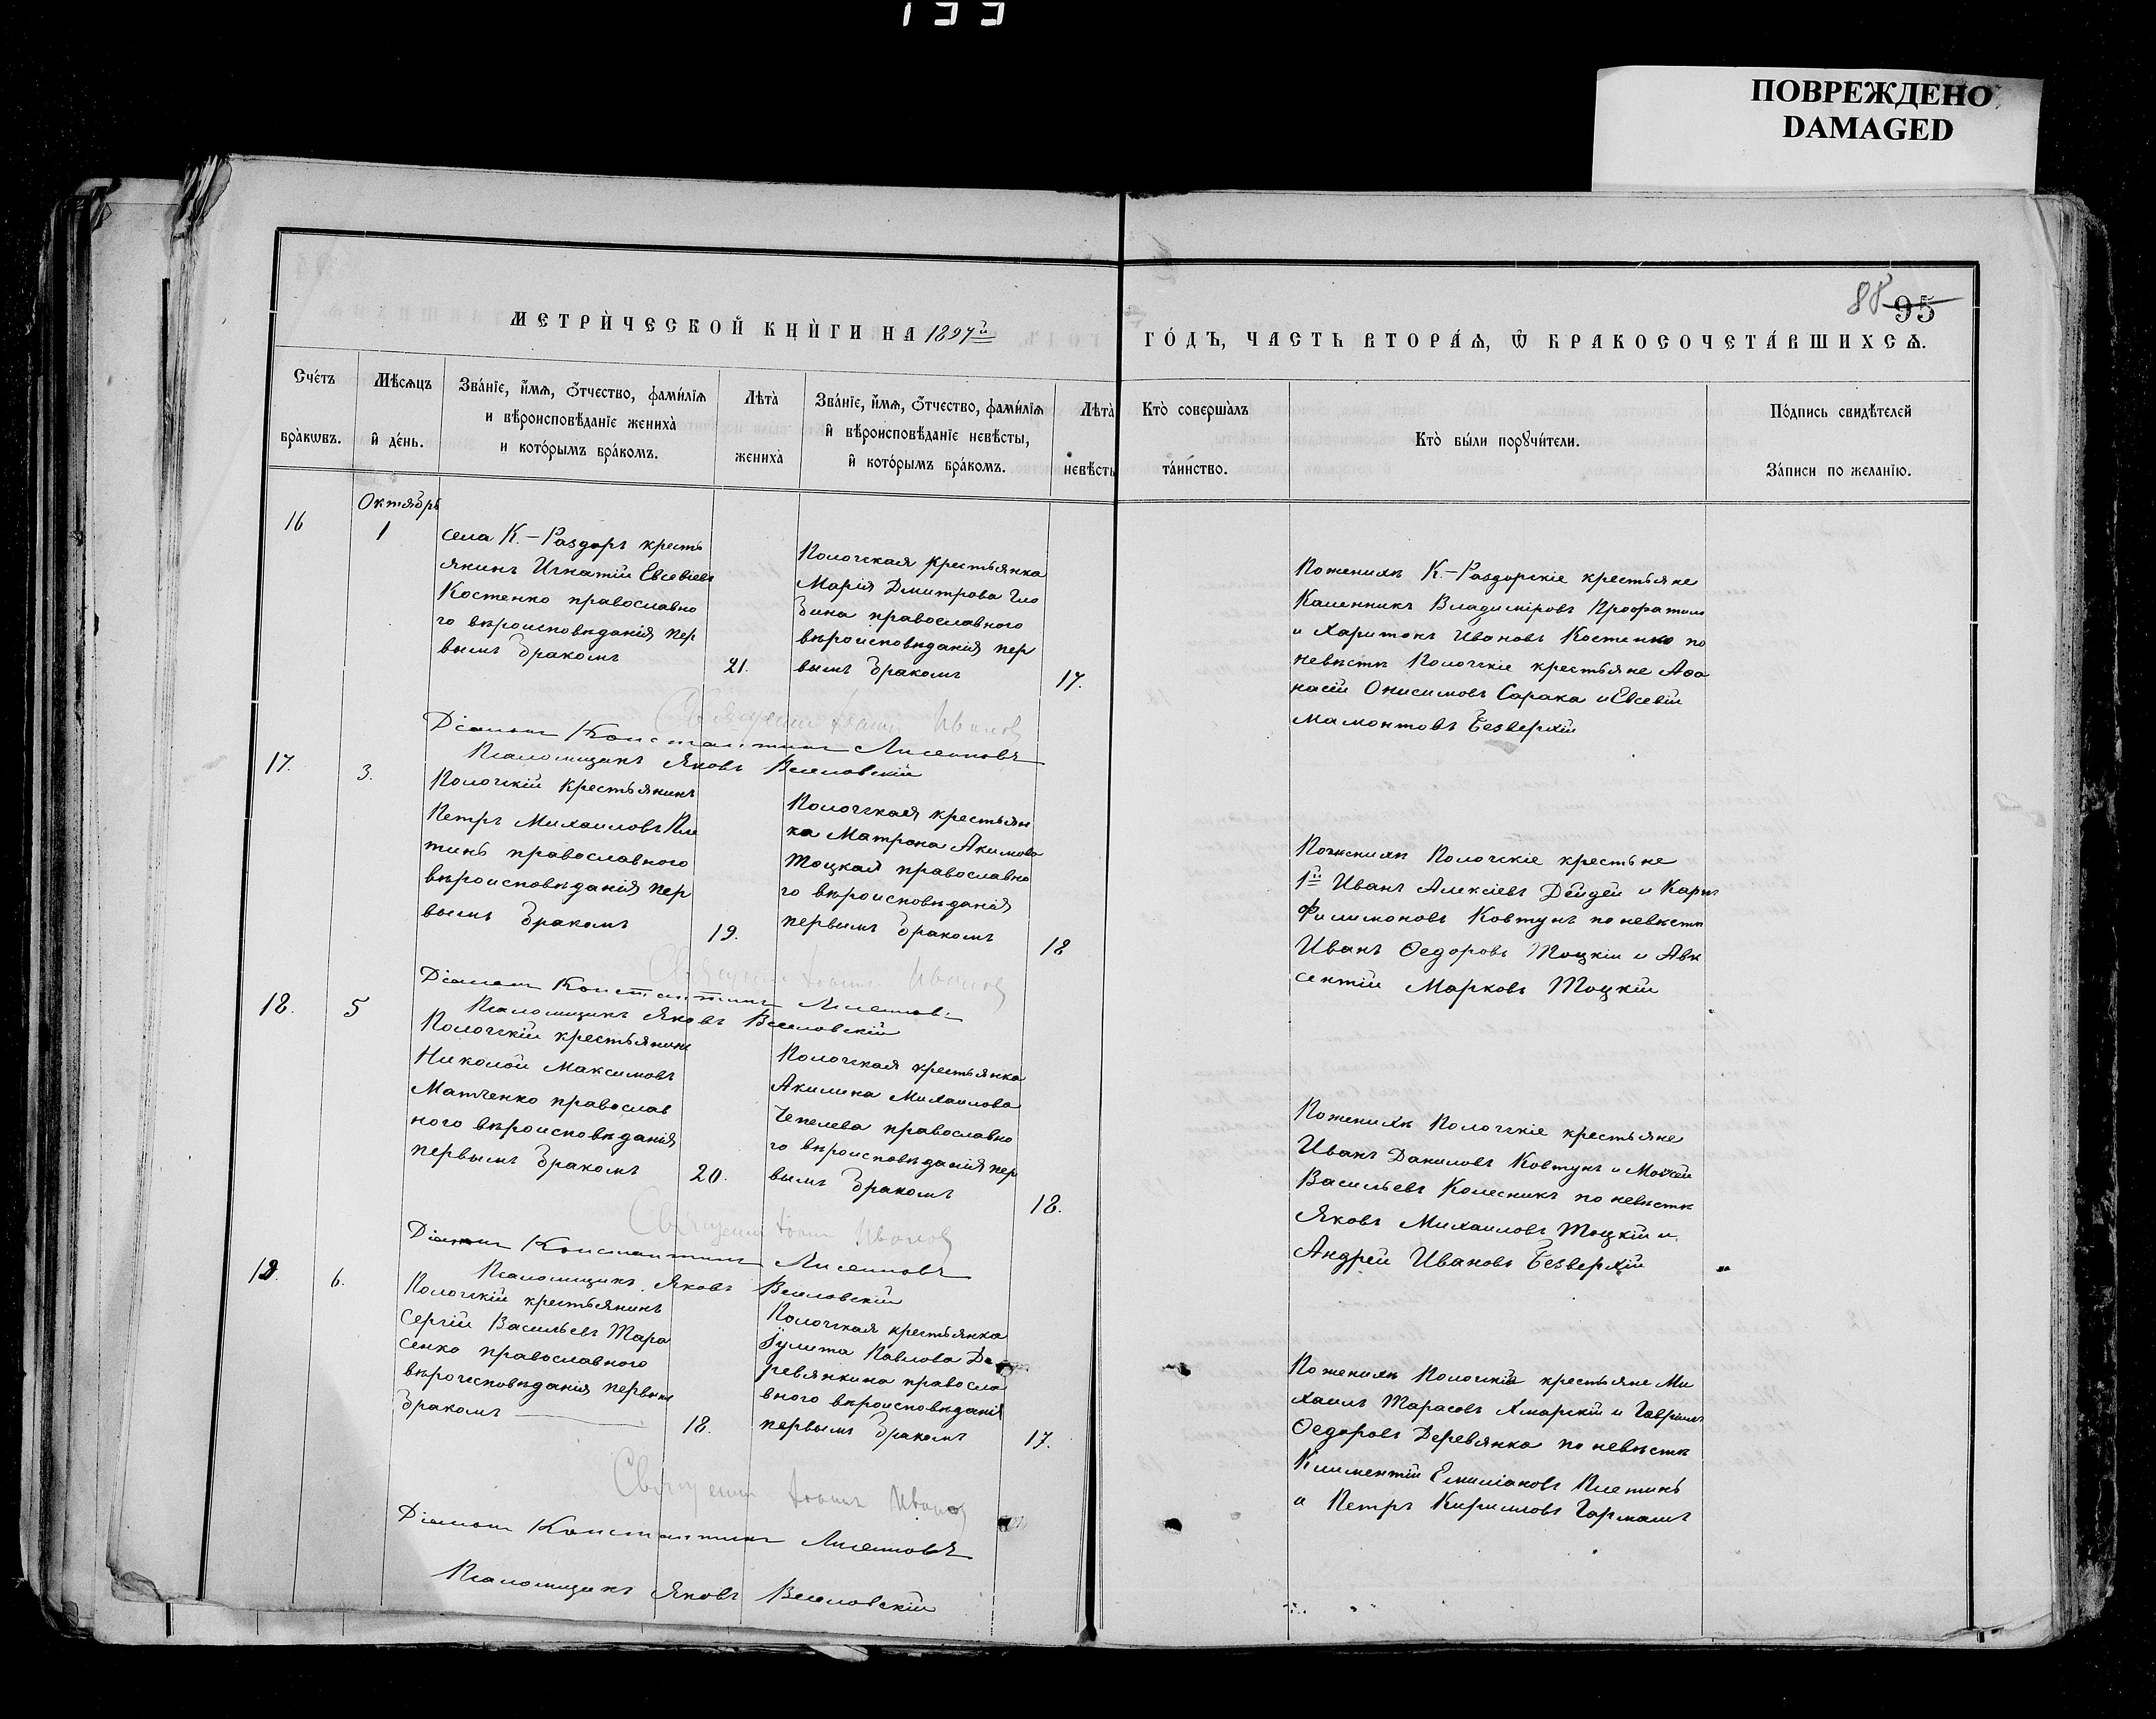 133
ПОВРЕЖДЕНО
DAMAGED
88 95
МЕТРИ́ЧЕСКОЙ КНИ́ГИ НА 1897й
ГО́ДЪ, ЧАСТЬ ВТОРА́Ѧ, Ѡ БРАКОСОЧЕТА́ВШИХСѦ.
Сче́тъ бра́кѡвъ.
Мѣ́сѧцъ и҆ де́нь.
Зва́нїе, и҆́мѧ, ѻ҆́тчество, фами́лїѧ
и вѣроисповѣ́данїе жениха̀
и кото́рымъ бра́комъ.
Лѣ́та̀ жениха̀
Зва́нїе, и҆́мѧ, ѻ҆́тчество, фами́лїѧ
и҆ вѣроисповѣ́данїе невѣ́сты,
и҆ кото́рымъ бра́комъ.
Лѣ́та̀ невѣ́сты
Кто̀ соверша́лъ
та́инство.
Кто̀ бы́ли порꙋчи́тели.
По́дпись свидѣ́телей
За́писи по жела́нїю.
Октябрь
16
1
села К.-Раздоръ кресть
янинъ Игнатій Евсевіевъ
Костенко православно
го вѣроисповѣданія пер
вымъ бракомъ
21.
Пологская крестьянка
Марія Дмитрова
православного
вѣроисповѣданія пер
вымъ бракомъ
17.
По женихѣ К-Раздорскіе крестьяне
Каленникъ Владиміровъ
и Харитонъ Ивановъ Костенко по
невѣстѣ Пологскіе крестьяне Афа
насій Онисимовъ Сарака и Евсевій
Мамонтовъ Безверхій
Священн Іоаннъ Ивановъ
Діаконъ Константинъ
Псаломщикъ Яковъ Веселовскій
17.
3.
Пологскій крестьянинъ
Петръ Михаиловъ Пле
тинь православного
вѣроисповѣданія пер
вымъ бракомъ
19.
Пологская крестьян
ка Матрона Акимова
Тоцкая православно
го вѣроисповѣданія
первымъ бракомъ
18
По женихѣ Пологскіе крестьне
1й Иванъ Алексіевъ Дейдей и Карпъ
Филимоновъ Ковтунъ по невѣстѣ
Иванъ Ѳедоровъ Тоцкій и Авк
сентій Марковъ Тоцкій
Священн Іоаннъ Ивановъ
Діаконъ Константинъ
Псаломщикъ Яковъ Веселовскій
18.
5
Пологскій крестьянинъ
Николай Максимовъ
Матченко православ
ного вѣроисповѣданія
первымъ бракомъ
20.
Пологская крестьянка
Акилина Михаилова
Чепелева православно
го вѣроисповѣданія пер
вымъ бракомъ
18.
По женихѣ Пологскіе крестьяне
Иванъ Даниловъ Ковтунъ и Моисей
Васильевъ Колесникъ по невѣстѣ
Яковъ Михаиловъ Тоцкій и
Андрей Ивановъ Безверхій
Священн Іоаннъ Ивановъ
Діаконъ Константинъ
Псаломщикъ Яковъ Веселовскій
19.
6.
Пологскій крестьянинъ
Сергій Васильевъ Тара
сенко православного
вѣроисповѣданія первымъ
бракомъ
18.
Пологская крестьянка
Іулита Павлова Де
ревянкина правосла
вного вѣроисповѣданія
первымъ бракомъ
17.
По женихѣ Пологскіе крестьяне Ми
хаилъ Тарасовъ Хмарскій и Гавріилъ
Ѳедоровъ Деревянко по невѣстѣ
Климентій Емиліановъ Плетинь
и Петръ Кириловъ Гармашъ
Священн Іоаннъ Ивановъ
Діаконъ Константинъ
Псаломщикъ Яковъ Веселовскій